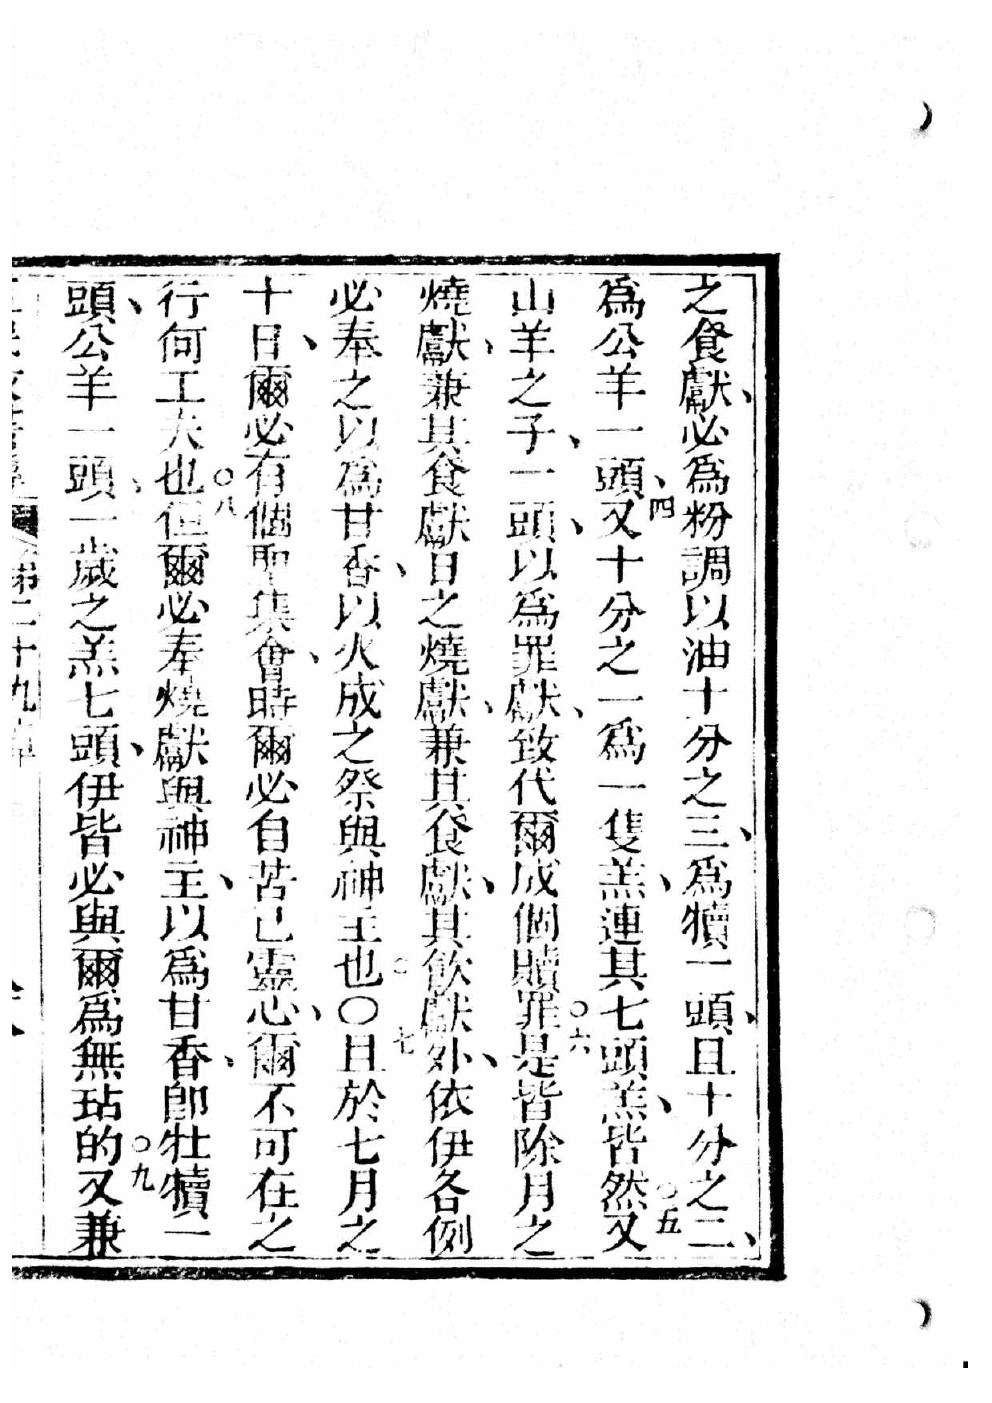 之食獻、必爲粉調以油十分之三、爲犢一頭、且十分之二、
爲公羊一頭、四又十分之一爲一隻羔、連其七頭羔、皆然○五又
山羊之子、一頭、以爲罪獻、致代爾成個贖罪○六是皆除月之
燒獻、兼其食獻日之燒獻、兼其食獻、其飲獻外、依伊各例
必奉之以爲甘香、以火成之祭與神主也○○七且於七月之
十日、爾必有個聖集會、時爾必自苦己靈心、爾不可在之
行何工夫也○八但爾必奉燒獻與神主、以爲甘香、卽牡犢一
頭、公羊一頭、一歲之羔七頭、伊皆必與爾爲無玷的○九又兼
第二十九章